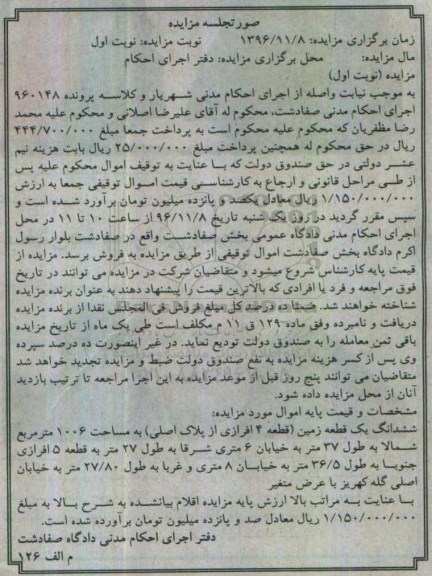 صورتجلسه مزایده
زمان برگزاری مزایده: ۱۳۹۶/۱۱/۸ نوبت مزایده: نوبت اول
مال مزایده: محل برگزاری مزایده: دفتر اجرای احکام
مزایده (نوبت اول)
به موجب نیابت واصله از اجرای احکام مدنی شهریار و کلاسه پرونده ۹۶۰۱۴۸
اجرای احکام مدنی صفادشت، محکوم له آقای علیرضا اصلانی و محکوم علیه محمد
رضا مظفریان که محکوم علیه محکوم است به پرداخت جمعا مبلغ ۴۴۴/۷۰۰/۰۰۰
ریال در حق محکوم له همچنین پرداخت مبلغ ۲۵/۰۰۰/۰۰۰ ریال بابت هزینه نیم
عشر دولتی در حق صندوق دولت که با عنایت به توقیف اموال محکوم علیه پس
از طی مراحل قانونی و ارجاع به کارشناسی قیمت اموال توقیفی جمعا به ارزش
۱/۱۵۰/۰۰۰/۰۰۰ ریال معادل یکصد و پانزده میلیون تومان برآورد شده است و
سپس مقرر گردید در روز یک شنبه تاریخ ۹۶/۱۱/۸ از ساعت ۱۰ تا ۱۱ در محل
اجرای احکام مدنی دادگاه عمومی بخش صفادشت واقع در صفادشت بلوار رسول
اکرم دادگاه بخش صفادشت اموال توقیفی از طریق مزایده به فروش برسد. مزایده از
قیمت پایه کارشناس شروع میشود و متقاضیان شرکت در مزایده می توانند در تاریخ
فوق مراجعه و فرد یا افرادی که بالاترین قیمت را پیشنهاد دهند به عنوان برنده مزایده
شناخته خواهند شد. ضمنا ده درصد کل مبلغ فروش فی المجلس نقدا از برنده مزایده
دریافت و نامبرده وفق ماده ۱۲۹ ق ۱۱ م مکلف است طی یک ماه از تاریخ مزایده
باقی ثمن معامله را به صندوق دولت تودیع نماید. در غیر اینصورت ده درصد سپرده
وی پس از کسر هزینه مزایده به نفع صندوق دولت ضبط و مزایده تجدید خواهد شد
متقاضیان می توانند پنج روز قبل از موعد مزایده به این اجرا مراجعه تا ترتیب بازدید
آنان از محل مزایده داده شود.
مشخصات و قیمت پایه اموال مورد مزایده:
ششدانگ یک قطعه زمین (قطعه ۴ افرازی از پلاک اصلی) به مساحت ۱۰۰۶ مترمربع
شمالا به طول ۳۷ متر به خیابان ۶ متری شرقا به طول ۲۷ متر به قطعه ۵ افرازی
جنوبا به طول ۳۶/۵ متر به خیابان ۸ متری و غربا به طول ۲۷/۸۰ متر به خیابان
اصلی گله کهریز با عرض متغیر
با عنایت به مراتب بالا ارزش پایه مزایده اقلام بیانشده به شرح بالا به مبلغ
۱/۱۵۰/۰۰۰/۰۰۰ ریال معادل صد و پانزده میلیون تومان برآورده شده است.
دفتر اجرای احکام مدنی دادگاه صفادشت
م الف ۱۲۶